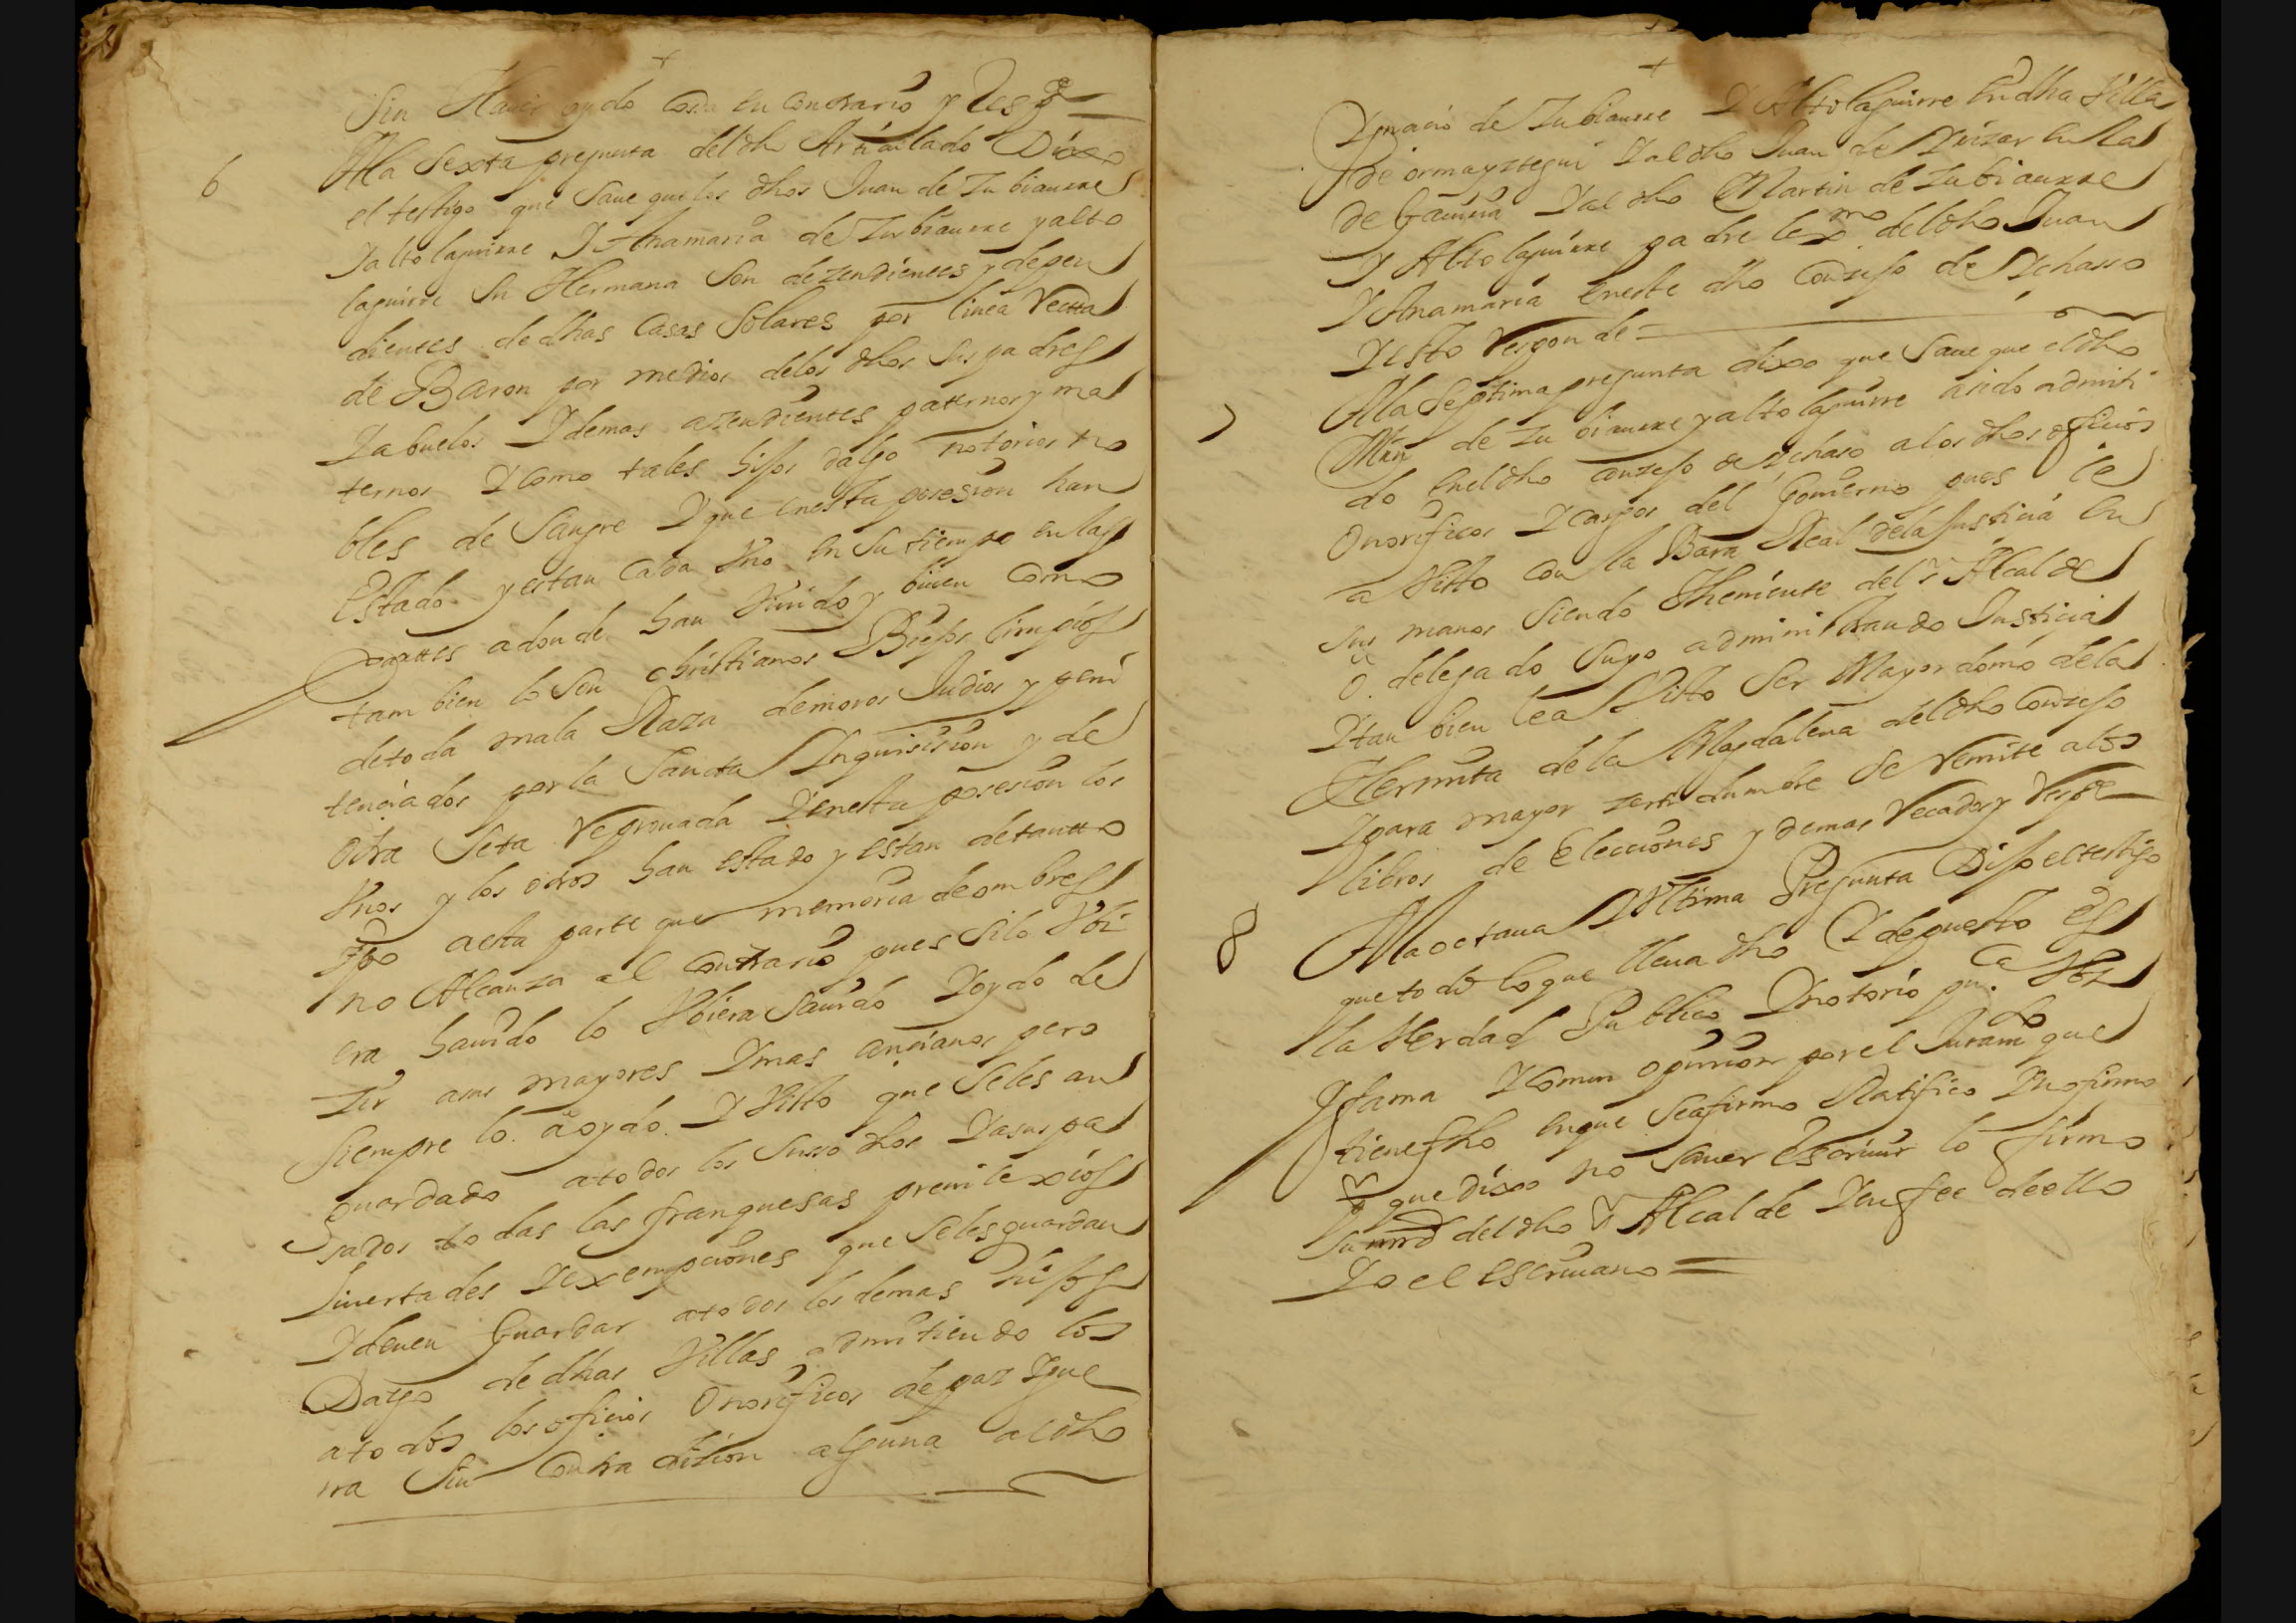 Sin Hauer oydo cosa en contrario y Respde
6
A la sexta pregunta del dho Articulado Dixo
el testigo que saue que los dhos Juan de Zubiaurre
Y altolaguirre Y Anamaria de Zubiaurre y alto
laguirre su Hermana son dezendientes y depen
dientes de dhas casas solares por linea Recta
de Baron por medios de los dhos sus padres
Y abuelos Y demas azendientes paternos y ma
ternos Y como tales hijos dalgo notorios no
bles de sangre Y que en esta posesion han
estado y estan cada Vno en su tiempo en las
partes adonde han viuido y biuen como
tambien lo son christianos Biejos limpios
de toda mala Raza de moros Judios y peni
tenciados por la Sancta Inquisision y de
otra seta Reprouada Y en esta posesion los
Vnos y los otros han estado y estan de tantto
tpo a esta parte que memoria de ombres
no Alcanza al contrario pues si lo Vbi
era hauido lo Vbiera sauido Y oydo de
zir a sus mayores Y mas ancianos pero
siempre lo a oydo Y Visto que se les an
guardado a todos los suso dhos Y a sus pa
sados todas las franquesas preuilexios
liuertades Y exempciones que se les guardan
Y deuen Guardar a todos los demas hijos
Dalgo de dhas Villas admitiendo los
a todos los oficios Onorificos de paz Y gue
rra sin contradizion alguna al dho
Ygnacio de Zubiaurre Y Altolaguirre en dha Villa
de ormayztegui Y al dho Juan de en la
de Gauiria Y al dho Martin de Zubiaurre
Y Altolaguirre padre lexmo del dho Juan
Y Anamaria en este dho conzejo de Ychasso
Y esto Responde =
7
A la septima pregunta dixo que saue que el dho
Mrn de Zubiaurre y altolaguirre a sido admiti
do en el dho conzejo de Ychaso a los dhos oficios
Onorificos Y cargos del Gouierno pues le
a Visto con la Bara Real de la Justicia en
sus manos siendo Theniente del sr Alcalde
o delegado suyo administrando Justicia
Y tan bien lea Visto ser Mayordomo de la
Hermita de la Magdalena del dho conzejo
Y para mayor zertidumbre se remite a los
libros de Elecciones y demas Recados y Respde
8
A la octaua Y Vltima Pregunta Dijo el testigo
que todo lo que lleua dho Y depuesto es
la Verdad Publico Y notorio puca Voz
Y fama Y comun opinion por el Juramto que
tiene fho en que se afirmo Ratifico Y no firmo
por que dixo no sauer Escriuir lo firmo
su mrd del dho sr Alcalde Y en fee de ello
Yo el escriuano =